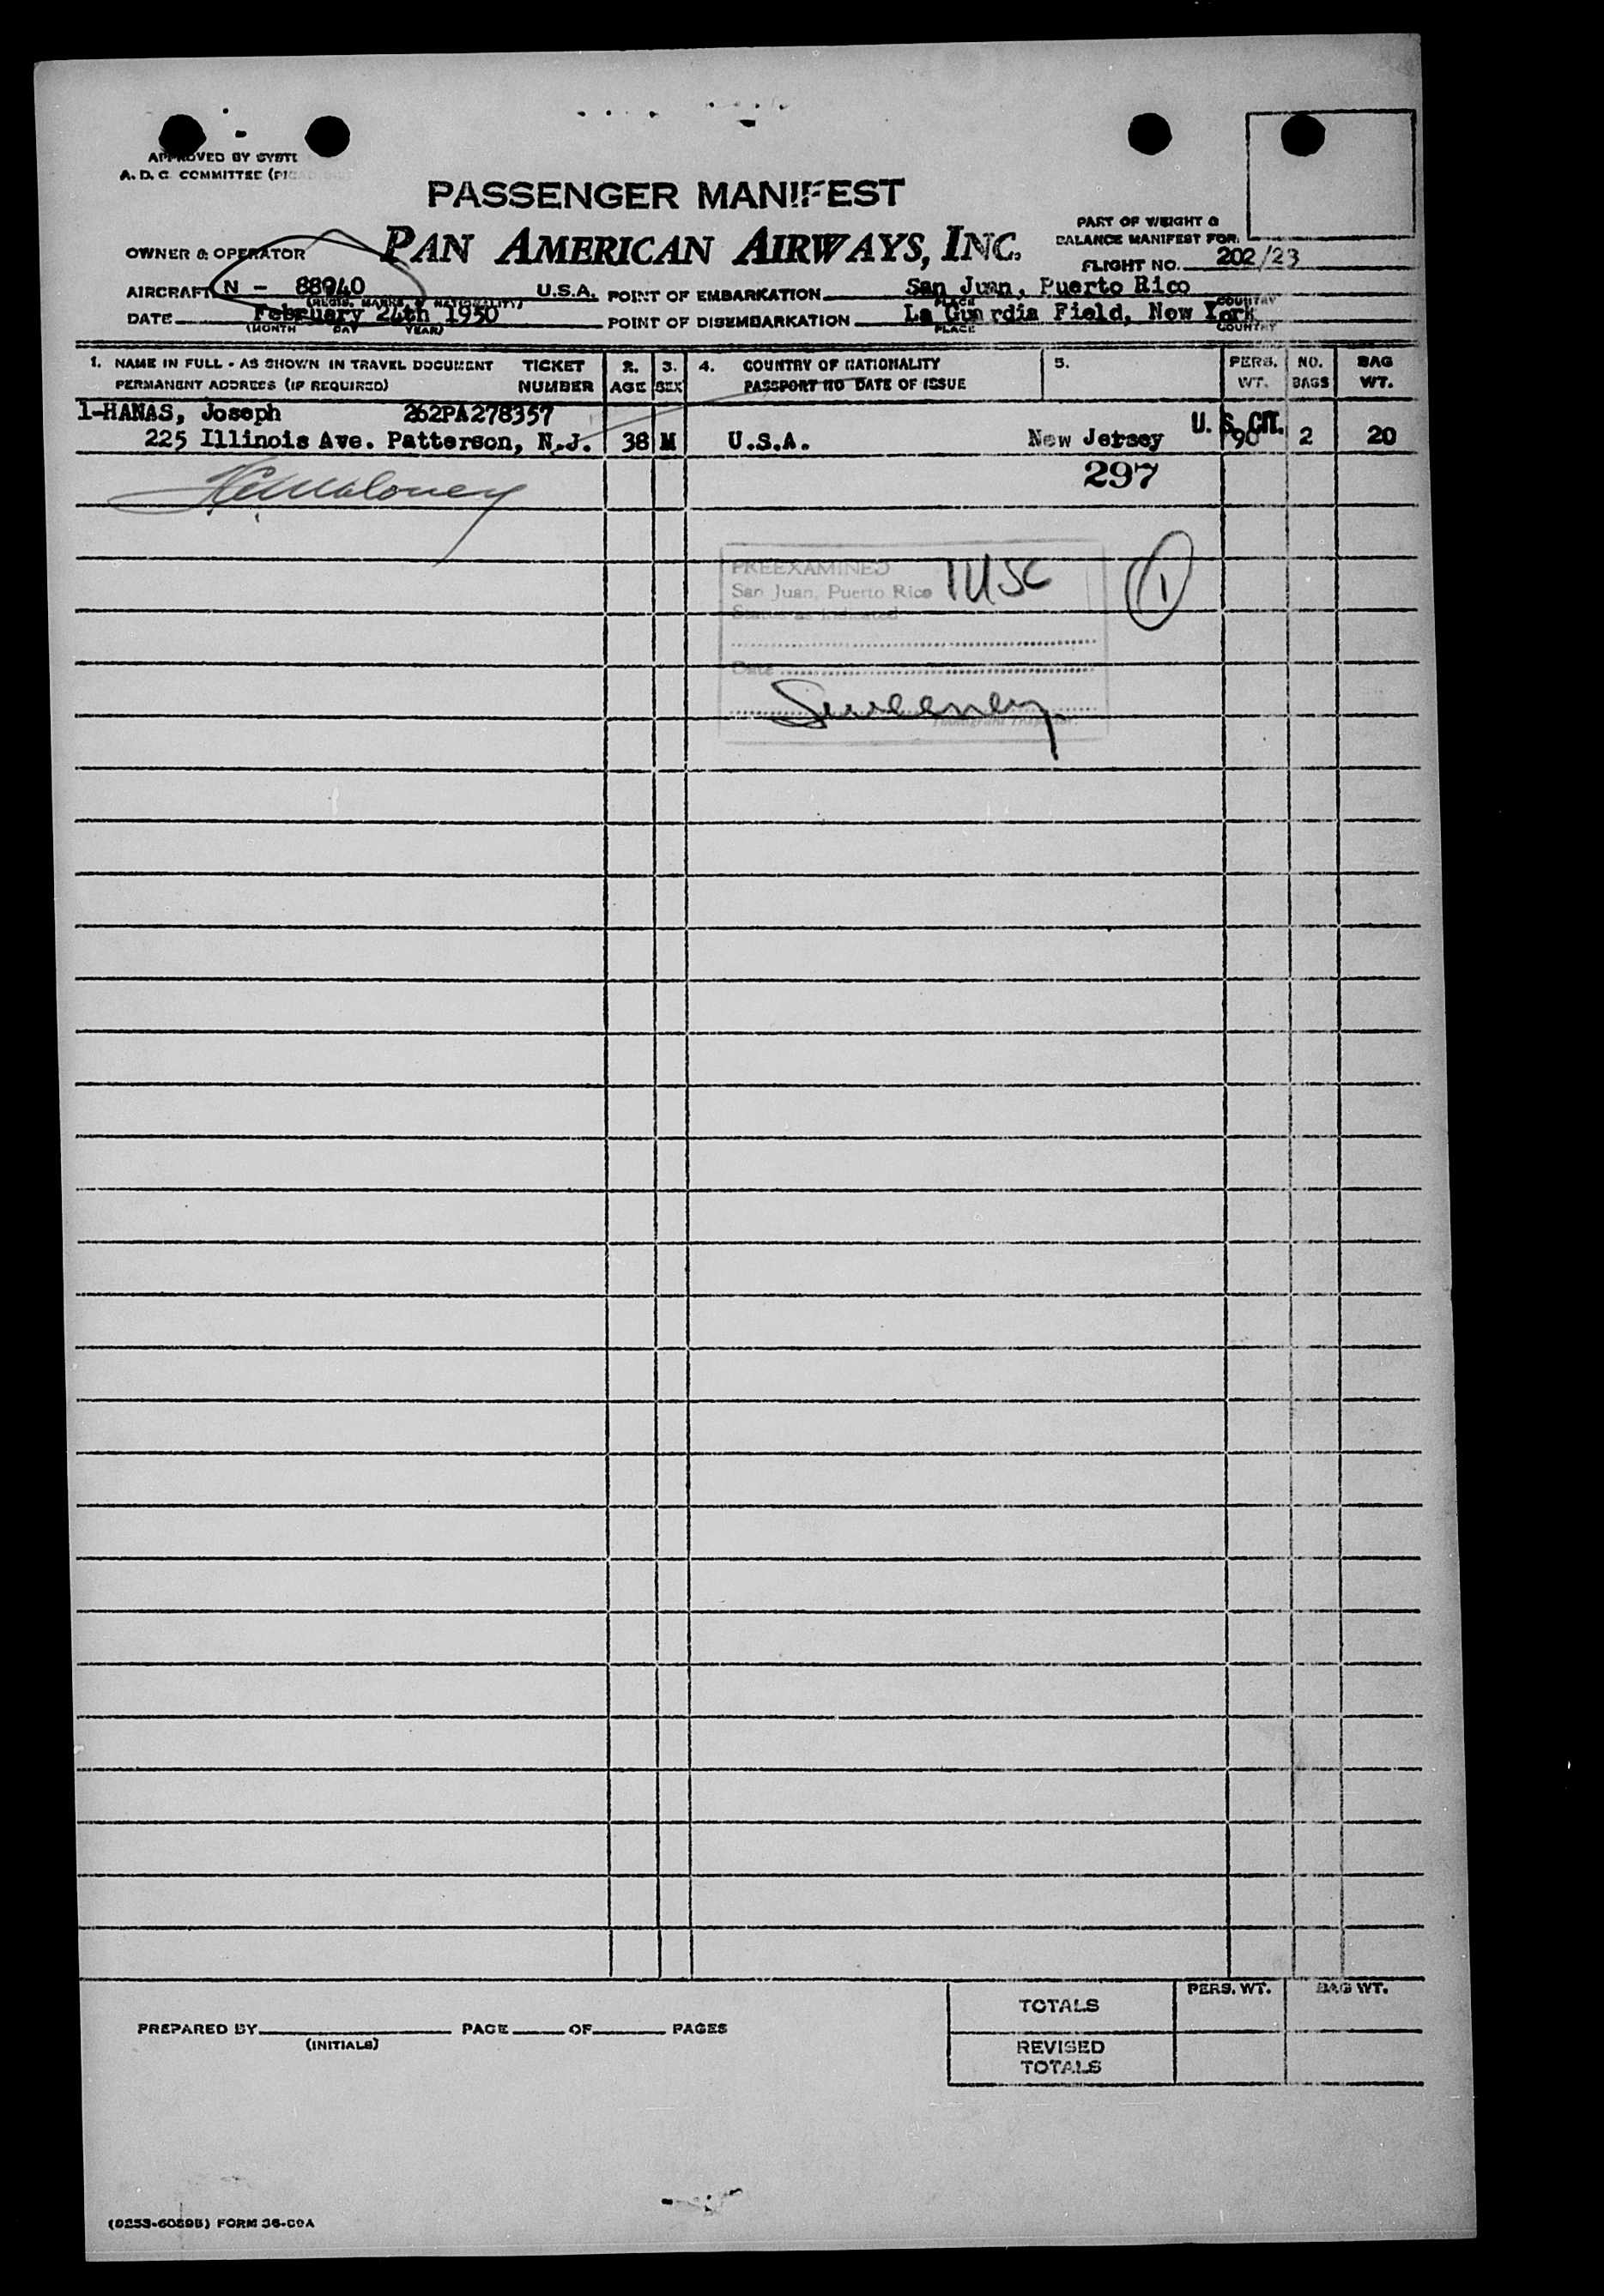 APPROVED BY SYSTE
A. D. C. COMMITTEE
PASSENGER MANIFEST
PART OF WEIGHT &
BALANCE MANIFEST FOR:
OWNER & OPERATOR PAN AMERICAN AIRWAYS, INC.
FLIGHT NO. 202/23
AIRCRAFT N - 88940 U.S.A. POINT OF EMBARKATION San Juan, Puerto Rico
(REGIS. MARKS & NATIONALITY) PLACE COUNTRY
DATE February 24th 1950 POINT OF DISEMBARKATION La Guardia Field, New York
(MONTH DAY YEAR) PLACE COUNTRY
1. NAME IN FULL - AS SHOWN IN TRAVEL DOCUMENT TICKET 2. 3. 4. COUNTRY OF NATIONALITY 5. PERS. NO. BAG
PERMANENT ADDRESS (IF REQUIRED) NUMBER AGE SEX PASSPORT NO DATE OF ISSUE WT. BAGS WT.
1-HANAS, Joseph 262PA278357 U. S. CIT.
225 Illinois Ave. Patterson, N.J. 38 M U.S.A. New Jersey 190 2 20
297
PREEXAMINED
San Juan, Puerto Rico
Status as indicated
1
Date
Sweeney
Immigrant Inspector
TOTALS PERS. WT. BAG WT.
PREPARED BY PAGE OF PAGES
(INITIALS)
REVISED
TOTALS
FORM 36-09A